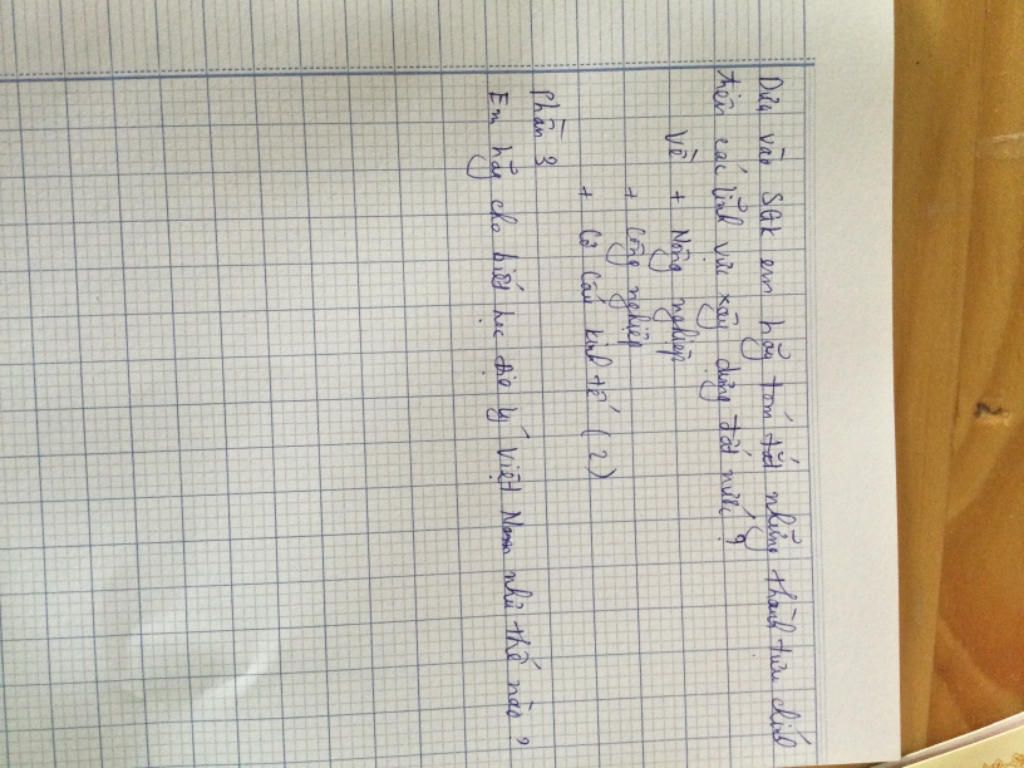 Dựa vào SGK em hãy tóm tắt những thành tựu chính
trên các lĩnh vực xây dựng đất nước ?
Về + Nông nghiệp
+ Công nghiệp
+ Cơ cấu kinh tế (2)
Phần 3
Em hãy cho biết học địa lý Việt Nam như thế nào ?